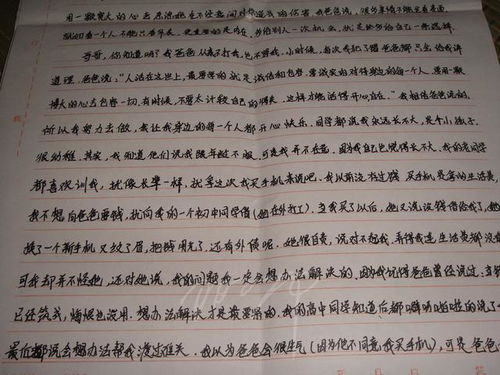 用一颗宽大的心去原谅她在不经意间对你造成的伤害。我爸爸说,很多事情不能只看表面,
就如看一个人不能只看外表,更重要的是内在,多给别人一次机会,就是给你自己一条后路
哥哥,你知道吗?我爸爸从来不打我,也不骂我,小时候,每次我犯了错,爸爸都只会给我讲
道理。爸爸说:“人活在这世上,最重要的就是诚信和包容,要诚实的对待身边的每一个人,要用一颗
博大的心去包容一切,有时候,不要太计较自己的得失,这样才能活得开心自在。”我相信爸爸说的,
所以我努力去做,我让我身边的每一个人都开心快乐。同学都说我永远长不大,是个小孩子。
很幼稚。其实,我知道他们说我跟年龄不服,可是我并不在意。因为我自己也觉得长不大。我的老同学
都喜欢训我,就像长辈一样,就拿这次我买手机来说吧,我以前没有过钱买手机是拿的生活费,
我不想向爸爸要钱,就向我的一个初中同学借(她在外打工)。当我买了以后,她又说没钱借给我了,她
换了一个新手机又纹了眉,把钱用光了,还有外债呢。她很自责,说对不起我,弄得我连生活费都没
可我却并不怪她,还对她说,我的问题我一定会想办法解决的。因为我记得爸爸曾经说过,当
已经筑成,悔恨也没用,想办法解决才是最要紧的。我的高中同学知道后都噼哩啪啦的说了
最后都说会想办法帮我渡过难关。我以为爸爸会很生气(因为他不同意我买手机),可是爸爸